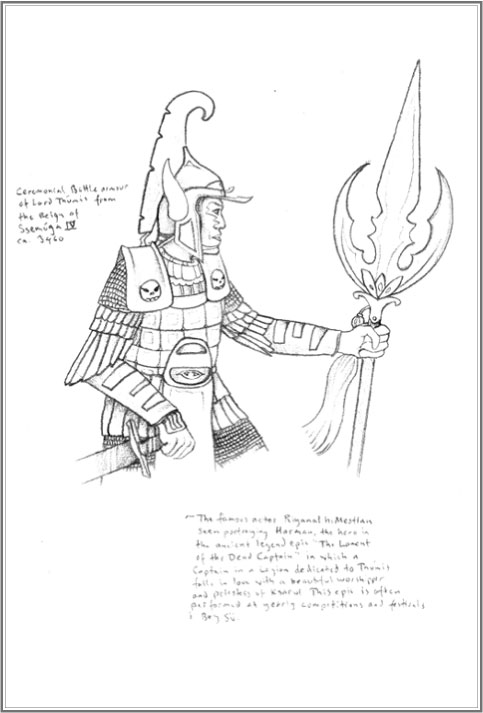 Ceremonial Battle armour
of Lord Thúmis from
the Reign of
Ssemúga IV
ca. 3460
~ The famous actor Riyanal hiMestlan
seen portraying Harmon, the hero in
the ancient legend epic "The Lament
of the Dead Captain" in which a
Captain in a Legion dedicated to Thúmis
falls in love with a beautiful worshipper
and priestess of Ksarul. This epic is often
performed at yearly competitions and festivals
i Bey Sü.